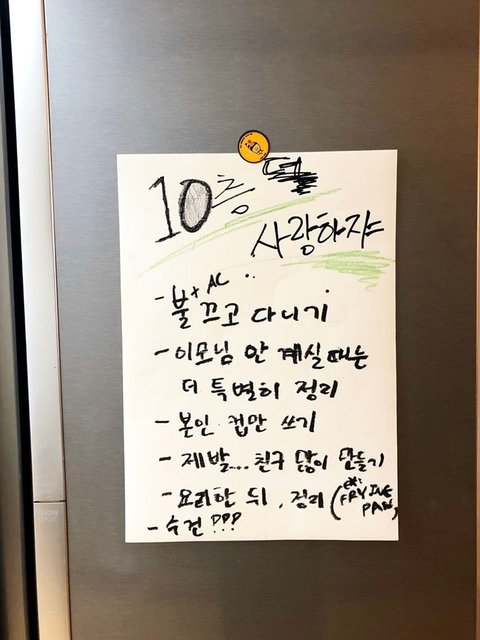 10층
사랑하자
- 불 + AC 끄고 다니기
- 이모님 안 계실때는
더 특별히 정리
- 본인 컵만 쓰기
- 제발... 친구 많이 만들기
- 요리한 뒤, 정리 (ex:
FRYING
PAN)
- 수건 ???